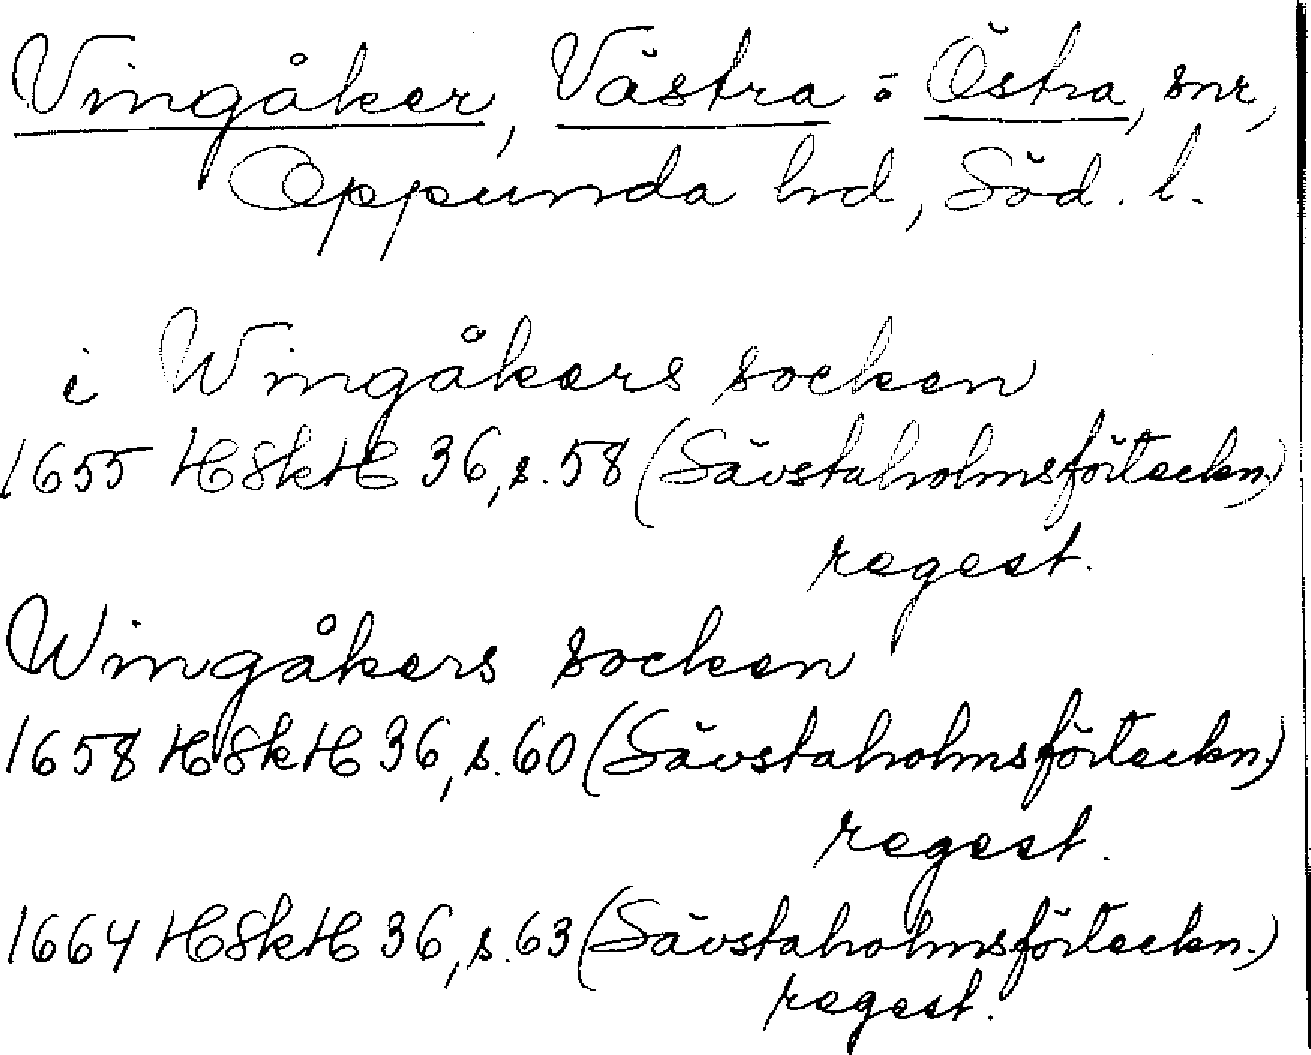 Vingåker, Västra o Östra, snr,
Oppunda hd, Söd. l.
i Wingåkers socken
1655 HSkH 36, s. 58 (Sävstaholmsförteckn.)
regest.
Wingåkers socken
1658 HSkH 36, s. 60 (Sävstaholmsförteckn.)
regest.
1664 HSkH 36, s. 63 (Sävstaholmsförteckn.)
regest.